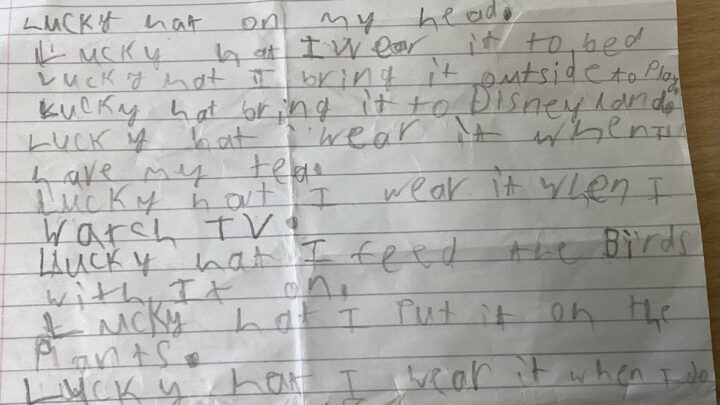 Lucky hat on my head.
Lucky hat I wear it to bed
Lucky hat I bring it outside to Play
Lucky hat bring it to Disneyland.
Lucky hat i wear it when I
have my tea.
Lucky hat I wear it when I
Watch TV.
Lucky hat I feed the Birds
with It on.
Lucky hat I Put it on the
Plants.
Lucky hat I wear it when I do